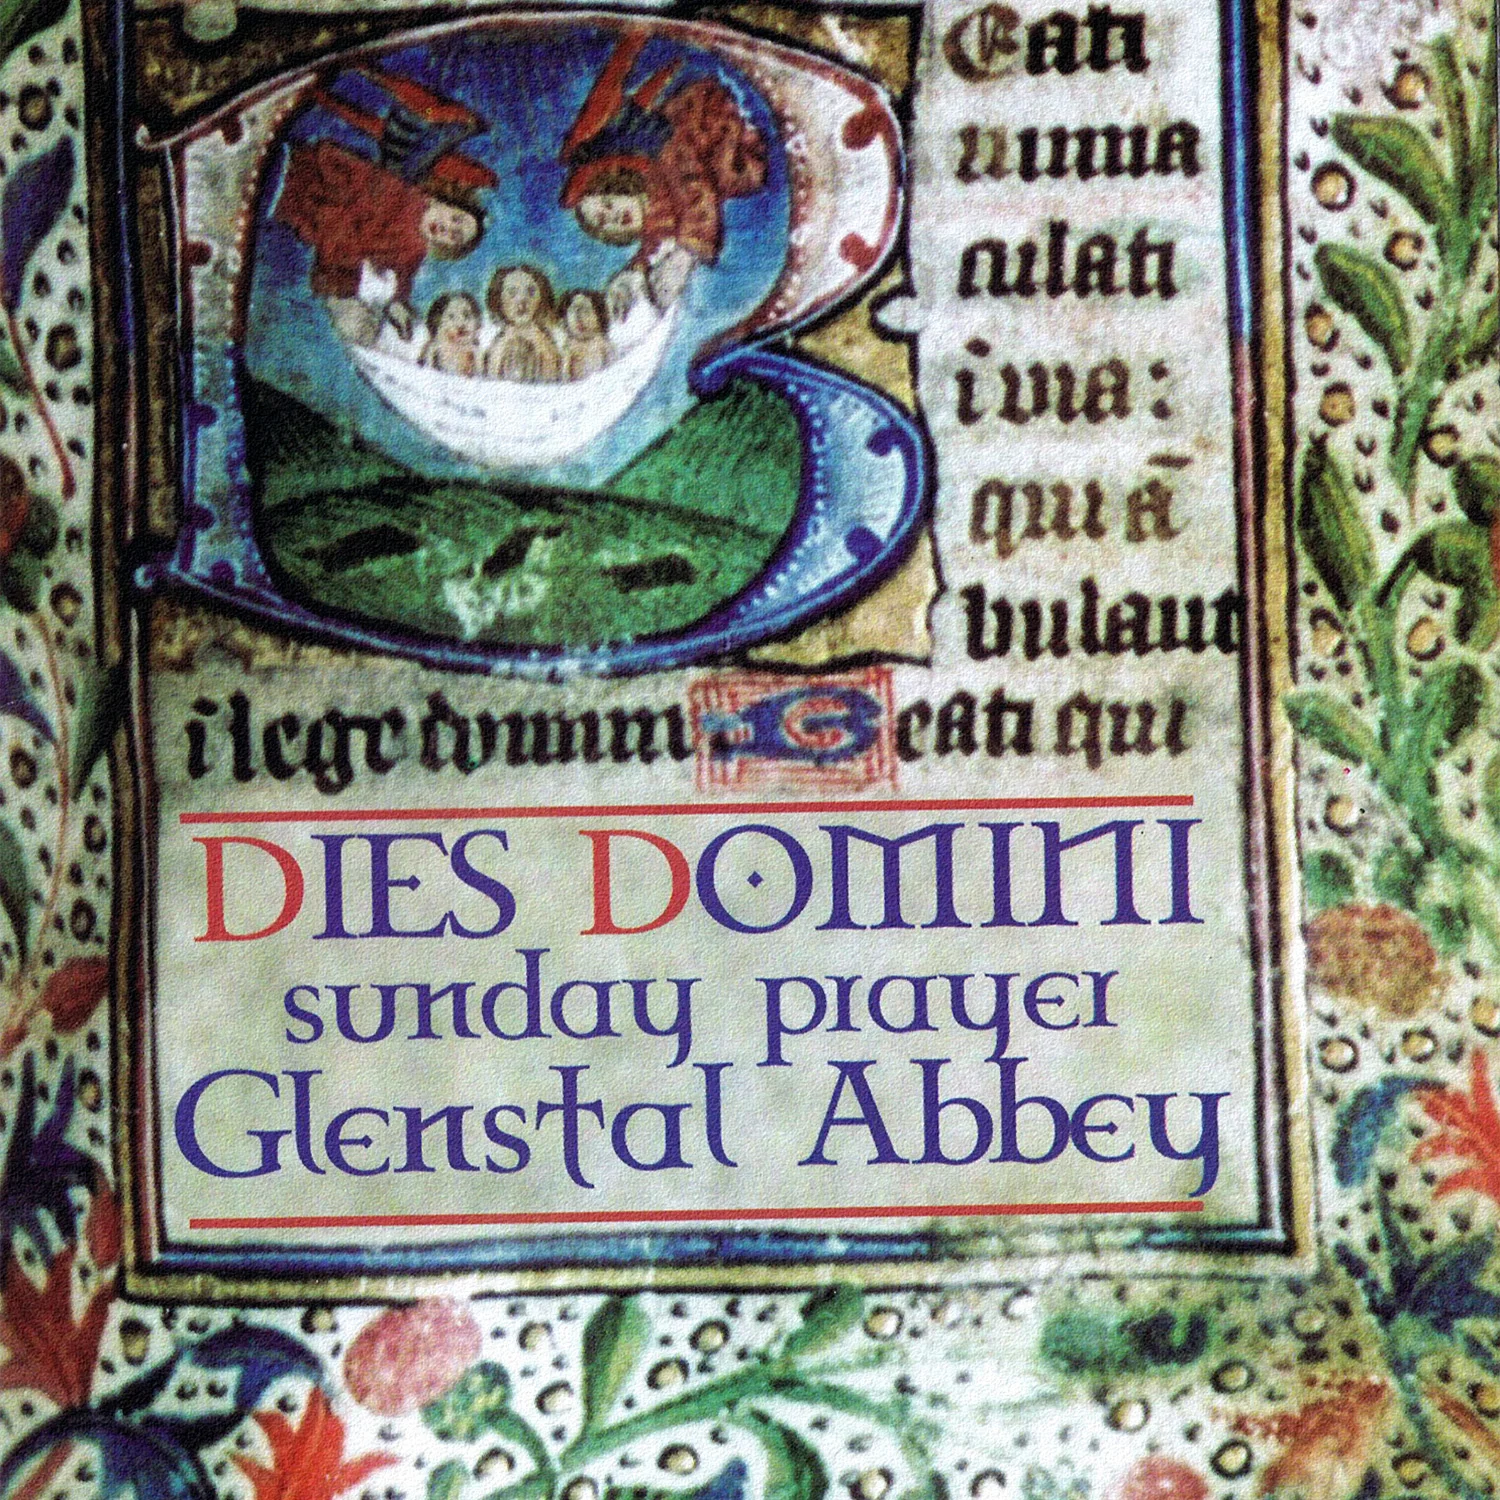 Beati
inma
culati
i via:
qui ā
bulant
i lege domini Beati qui
DIES DOMINI
sunday prayer
Glenstal Abbey